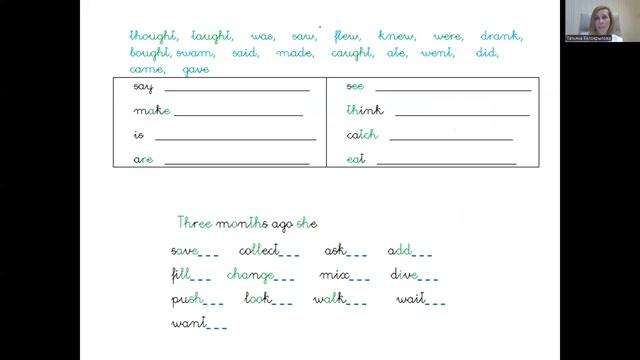 thought, taught, was, saw, flew, knew, were, drank,
bought, swam, said, made, caught, ate, went, did,
came, gave
say ____________ see ____________
make ____________ think ____________
is ____________ catch ____________
are ____________ eat ____________
Three months ago she
save___ collect___ ask___ add___
fill___ change___ mix___ dive___
push___ look___ walk___ wait___
want___
Татьяна Белокрылова